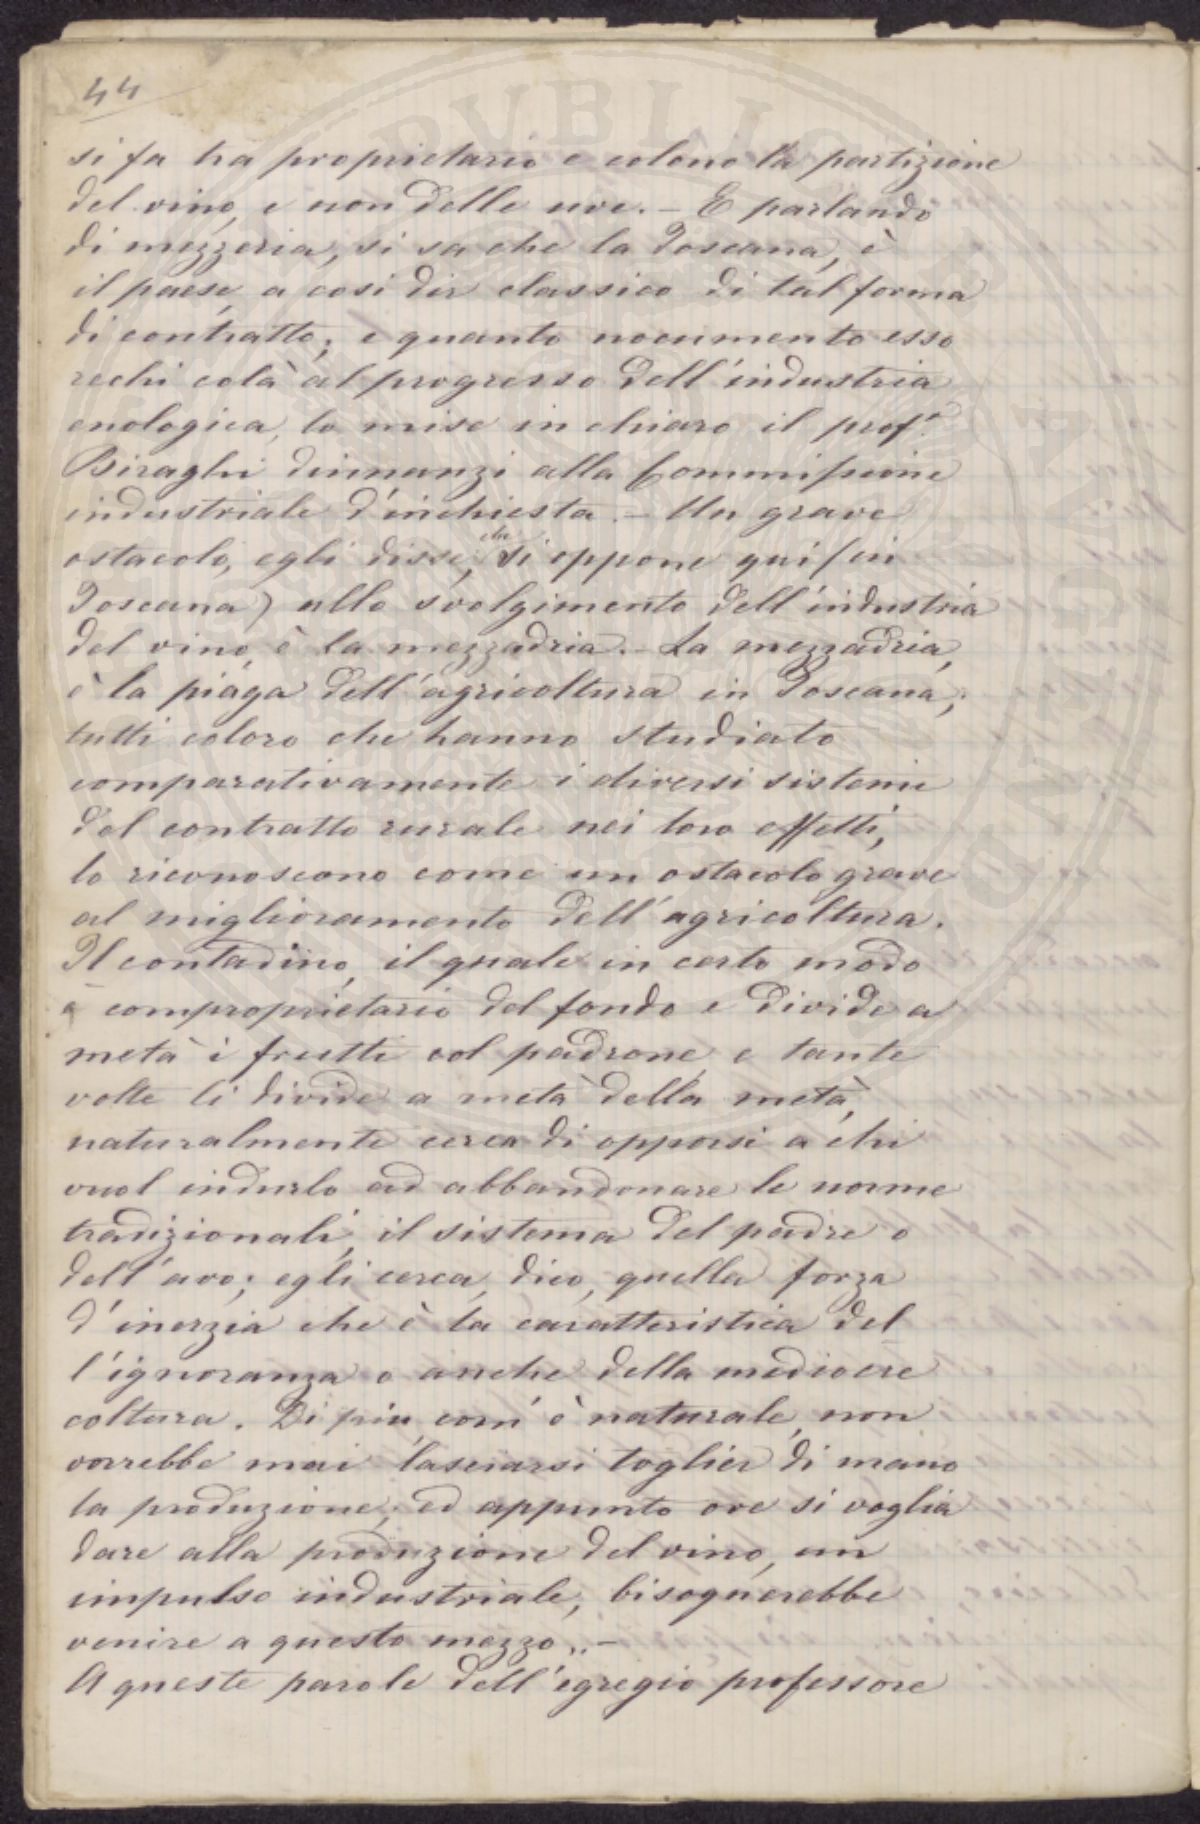 44
si fa tra proprietario e colono la partizione
del vino, e non delle uve. – E parlando
di mezzeria, si sa che la Toscana, è
il paese, a così dir classico di tal forma
di contratto; e quanto nocumento esso
rechi colà al progresso dell'industria
enologica, lo mise in chiaro il prof.r
Biraghi dinnanzi alla Commissione
industriale d'inchiesta. – Un grave
ostacolo, egli disse, che si oppone qui (in
Toscana) allo svolgimento dell'industria
del vino, è la mezzadria. – La mezzadria,
è la piaga dell'agricoltura in Toscana;
tutti coloro che hanno studiato
comparativamente i diversi sistemi
del contratto rurale nei loro effetti,
lo riconoscono come un ostacolo grave
al miglioramento dell'agricoltura.
Il contadino, il quale in certo modo
è comproprietario del fondo e divide a
metà i frutti col padrone, e tante
volte li divide a metà della metà,
naturalmente cerca di opporsi a chi
vuol indurlo ad abbandonare le norme
tradizionali, il sistema del padre o
dell'avo; egli cerca, dico, quella forza
d'inerzia che è la caratteristica del
l'ignoranza o anche della mediocre
coltura. Di più, com'è naturale, non
vorrebbe mai lasciarsi toglier di mano
la produzione; ed appunto ove si voglia
dare alla produzione del vino, un
impulso industriale, bisognerebbe
venire a questo mezzo„. –
A queste parole dell'egregio professore
PVBLIC
AVGEN